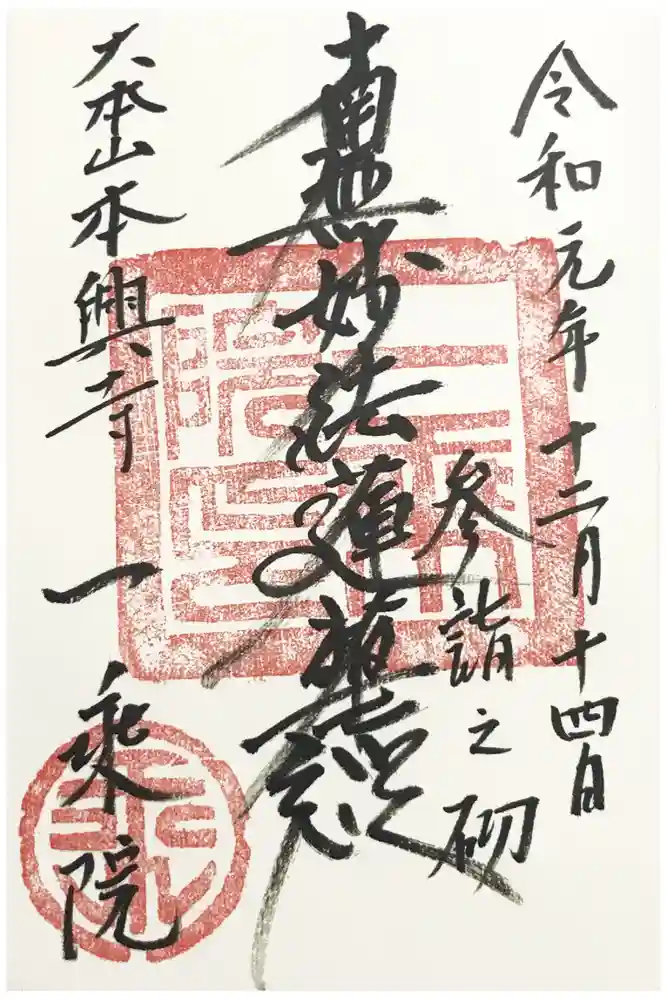 令和元年十二月十四日
参詣之砌
南無妙法蓮華経
大本山本興寺
一乗院